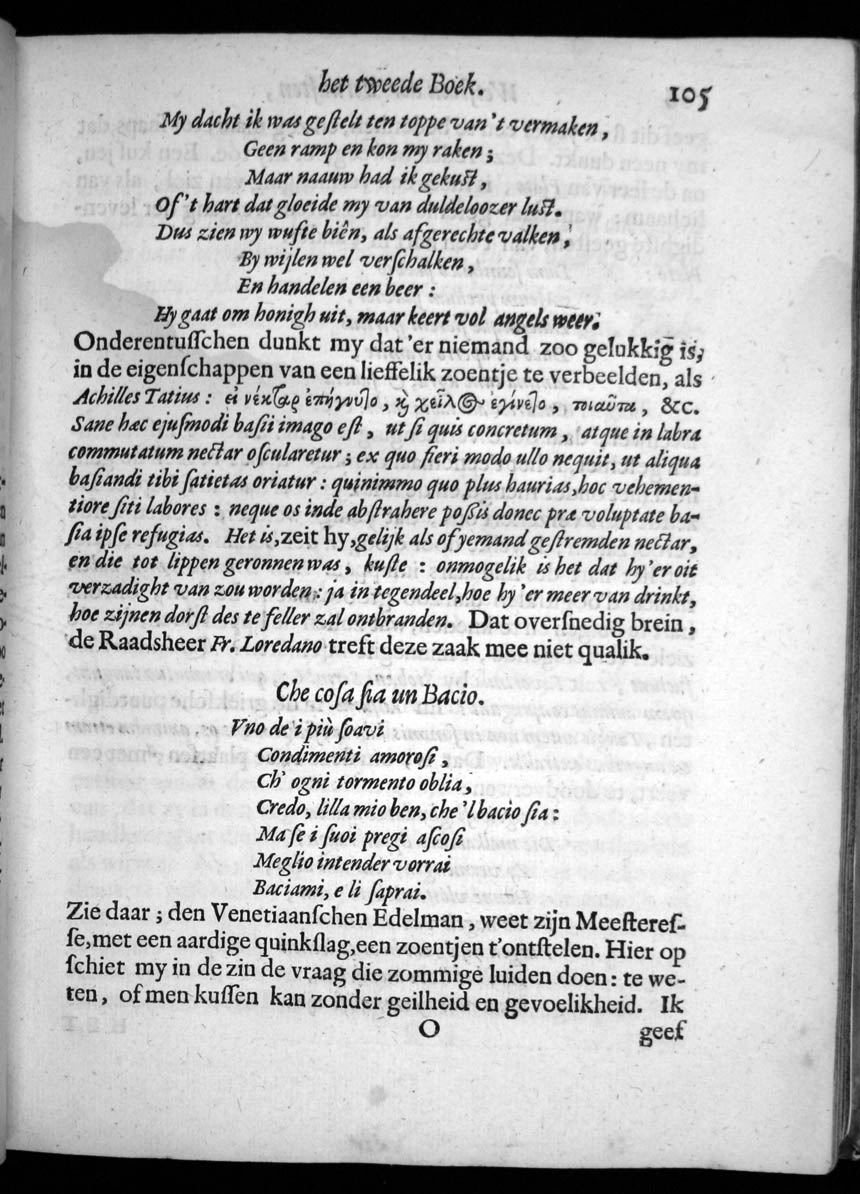 het tweede Boek. 105
My dacht ik was geſtelt ten toppe van't vermaken,
Geen ramp en kon my raken;
Maar naauw had ik gekuſt,
Of't hart dat gloeide my van duldeloozer luſt.
Dus zien wy wuſte biên, als afgerechte valken,
By wijlen wel verſchalken,
En handelen een beer:
Hy gaat om honigh uit, maar keert vol angels weer.
Onderentuſſchen dunkt my dat 'er niemand zoo gelukkig is,
in de eigenſchappen van een lieffelik zoentje te verbeelden, als
Achilles Tatius: εἰ νέκταρ ἐπήγνυτο, ϗ χεῖλ〇 ἐγίνετο, τοιαῦτα, &c.
Sane hæc ejuſmodi baſii imago eſt, ut ſi quis concretum, atque in labra
commutatum nectar oſcularetur; ex quo fieri modo ullo nequit, ut aliqua
baſiandi tibi ſatietas oriatur: quinimmo quo plus haurias, hoc vehemen-
tiore ſiti labores: neque os inde abſtrahere poſſis donec præ voluptate ba-
ſia ipſe refugias. Het is, zeit hy, gelijk als of yemand geſtremden nectar,
en die tot lippen geronnen was, kuſte: onmogelik is het dat hy 'er oit
verzadight van zou worden: ja in tegendeel, hoe hy 'er meer van drinkt,
hoe zijnen dorſt des te feller zal ontbranden. Dat overſnedig brein,
de Raadsheer Fr. Loredano treft deze zaak mee niet qualik.
Che coſa ſia un Bacio.
Vno de i più ſoavi
Condimenti amoroſi,
Ch' ogni tormento oblia,
Credo, lilla mio ben, che 'l bacio ſia:
Ma ſe i ſuoi pregi aſcoſi
Meglio intender vorrai
Baciami, e li ſaprai.
Zie daar; den Venetiaanſchen Edelman, weet zijn Meeſtereſ-
ſe, met een aardige quinkſlag, een zoentjen t'ontſtelen. Hier op
ſchiet my in de zin de vraag die zommige luiden doen: te we-
ten, of men kuſſen kan zonder geilheid en gevoelikheid. Ik
O geef